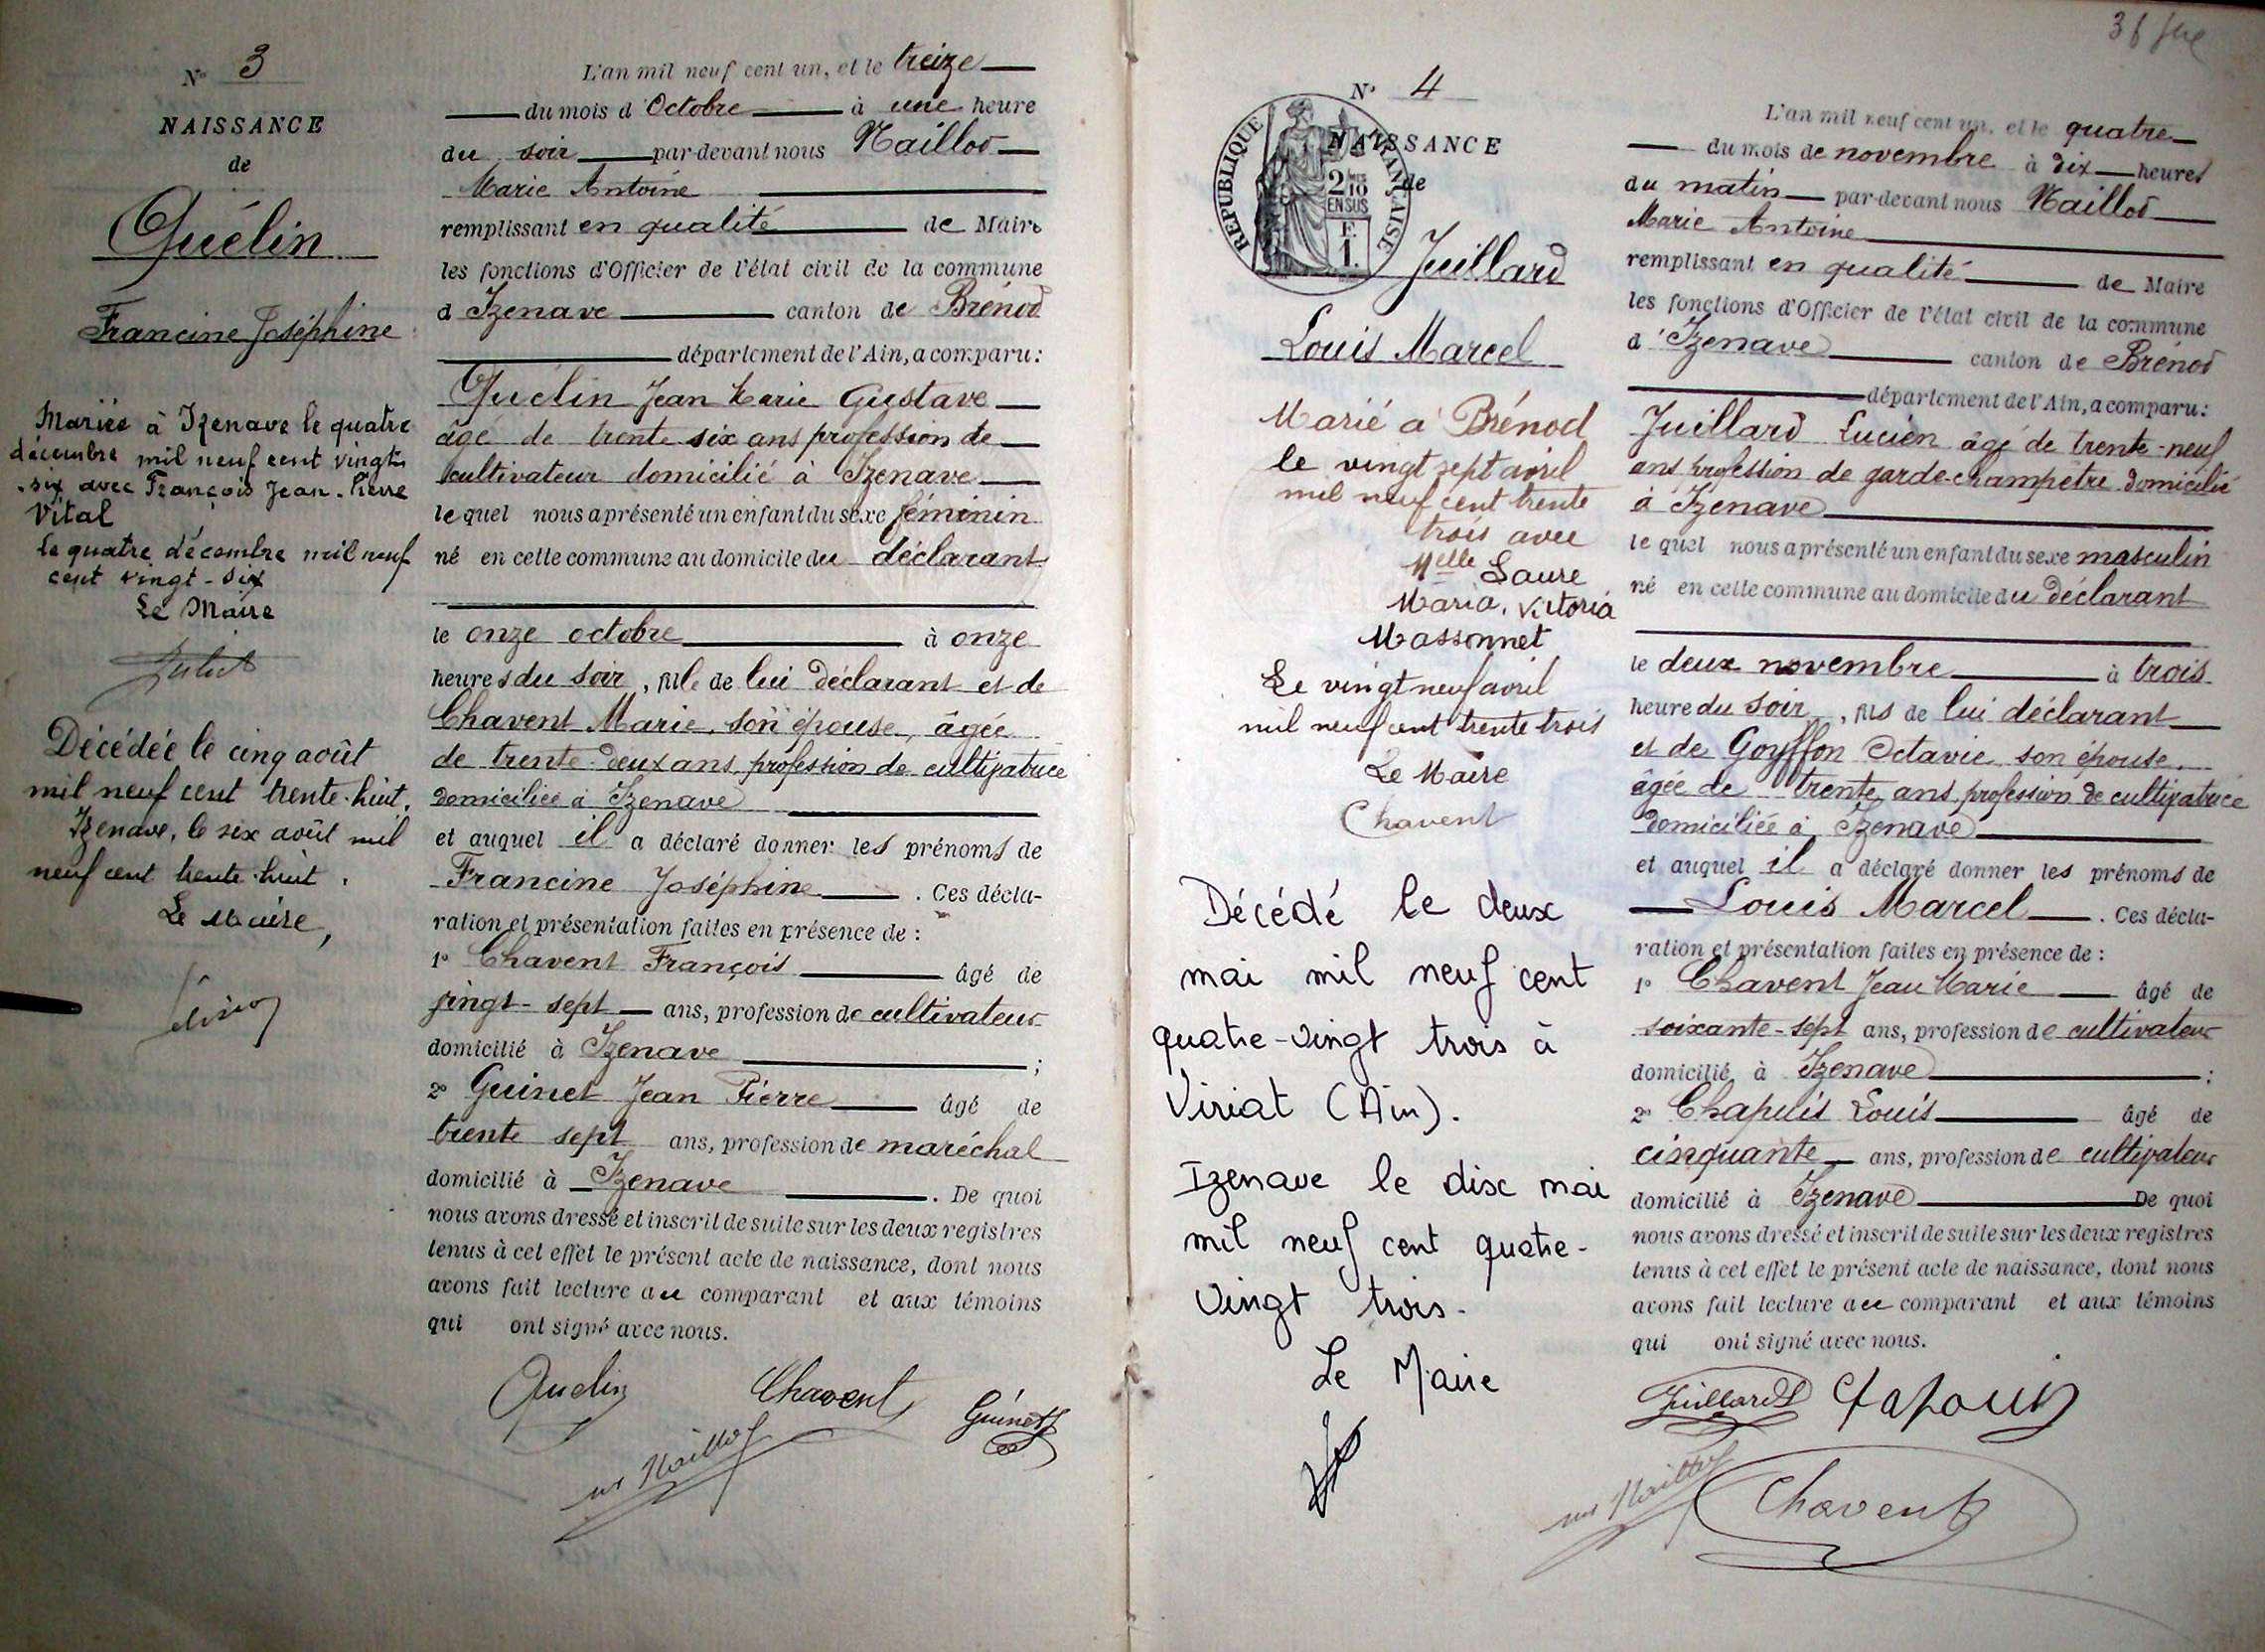 Nº 3
NAISSANCE
de
Quélin
Francine Joséphine
Mariée à Izenave le quatre
décembre mil neuf cent vingt-
six avec François Jean-Pierre
Vital
Le quatre décembre mil neuf
cent vingt-six
Le Maire
Décédée le cinq août
mil neuf cent trente-huit.
Izenave, le six août mil
neuf cent trente-huit.
Le Maire,
L'an mil neuf cent un, et le treize
du mois d'Octobre à une heure
du soir par-devant nous Maillod
Marie Antoine
remplissant en qualité de Maire
les fonctions d'Officier de l'état civil de la commune
d Izenave canton de Brénod
département de l'Ain, a comparu:
Quélin Jean Marie Gustave
âgé de trente six ans profession de
cultivateur domicilié à Izenave
lequel nous a présenté un enfant du sexe féminin
né en cette commune au domicile du déclarant
le onze octobre à onze
heures du soir, fille de lui déclarant et de
Chavent Marie, son épouse, âgée
de trente-deux ans, profession de cultivatrice
domiciliée à Izenave
et auquel il a déclaré donner les prénoms de
Francine Joséphine. Ces décla-
ration et présentation faites en présence de:
1º Chavent François âgé de
vingt-sept ans, profession de cultivateur
domicilié à Izenave;
2º Guinet Jean Pierre âgé de
trente sept ans, profession de maréchal
domicilié à Izenave. De quoi
nous avons dressé et inscrit de suite sur les deux registres
tenus à cet effet le présent acte de naissance, dont nous
avons fait lecture au comparant et aux témoins
qui ont signé avec nous.
Quelin Chavent Guinet
Maillod
Nº 4
NAISSANCE
de
REPUBLIQUE FRANÇAISE
2/10
EN SUS
F.
1.
Juillard
Louis Marcel
Marié à Brénod
le vingt sept avril
mil neuf cent trente
trois avec
Melle Laure
Maria, Victoria
Massonnet
Le vingt neuf avril
mil neuf cent trente trois
Le Maire
Chavent
Décédé le deux
mai mil neuf cent
quatre-vingt trois à
Viriat (Ain).
Izenave le dix mai
mil neuf cent quatre-
vingt trois.
Le Maire
L'an mil neuf cent un, et le quatre
du mois de novembre à dix heures
du matin par-devant nous Maillod
Marie Antoine
remplissant en qualité de Maire
les fonctions d'Officier de l'état civil de la commune
d'Izenave canton de Brénod
département de l'Ain, a comparu:
Juillard Lucien âgé de trente-neuf
ans profession de garde-champêtre domicilié
à Izenave
lequel nous a présenté un enfant du sexe masculin
né en cette commune au domicile du déclarant
le deux novembre à trois
heure du soir, fils de lui déclarant
et de Goyffon Octavie son épouse,
âgée de trente ans, profession de cultivatrice
domiciliée à Izenave
et auquel il a déclaré donner les prénoms de
Louis Marcel. Ces décla-
ration et présentation faites en présence de:
1º Chavent Jean Marie âgé de
soixante-sept ans, profession de cultivateur
domicilié à Izenave;
2º Chapuis Louis âgé de
cinquante ans, profession de cultivateur
domicilié à Izenave De quoi
nous avons dressé et inscrit de suite sur les deux registres
tenus à cet effet le présent acte de naissance, dont nous
avons fait lecture au comparant et aux témoins
qui ont signé avec nous.
Juillard
Maillod Chavent